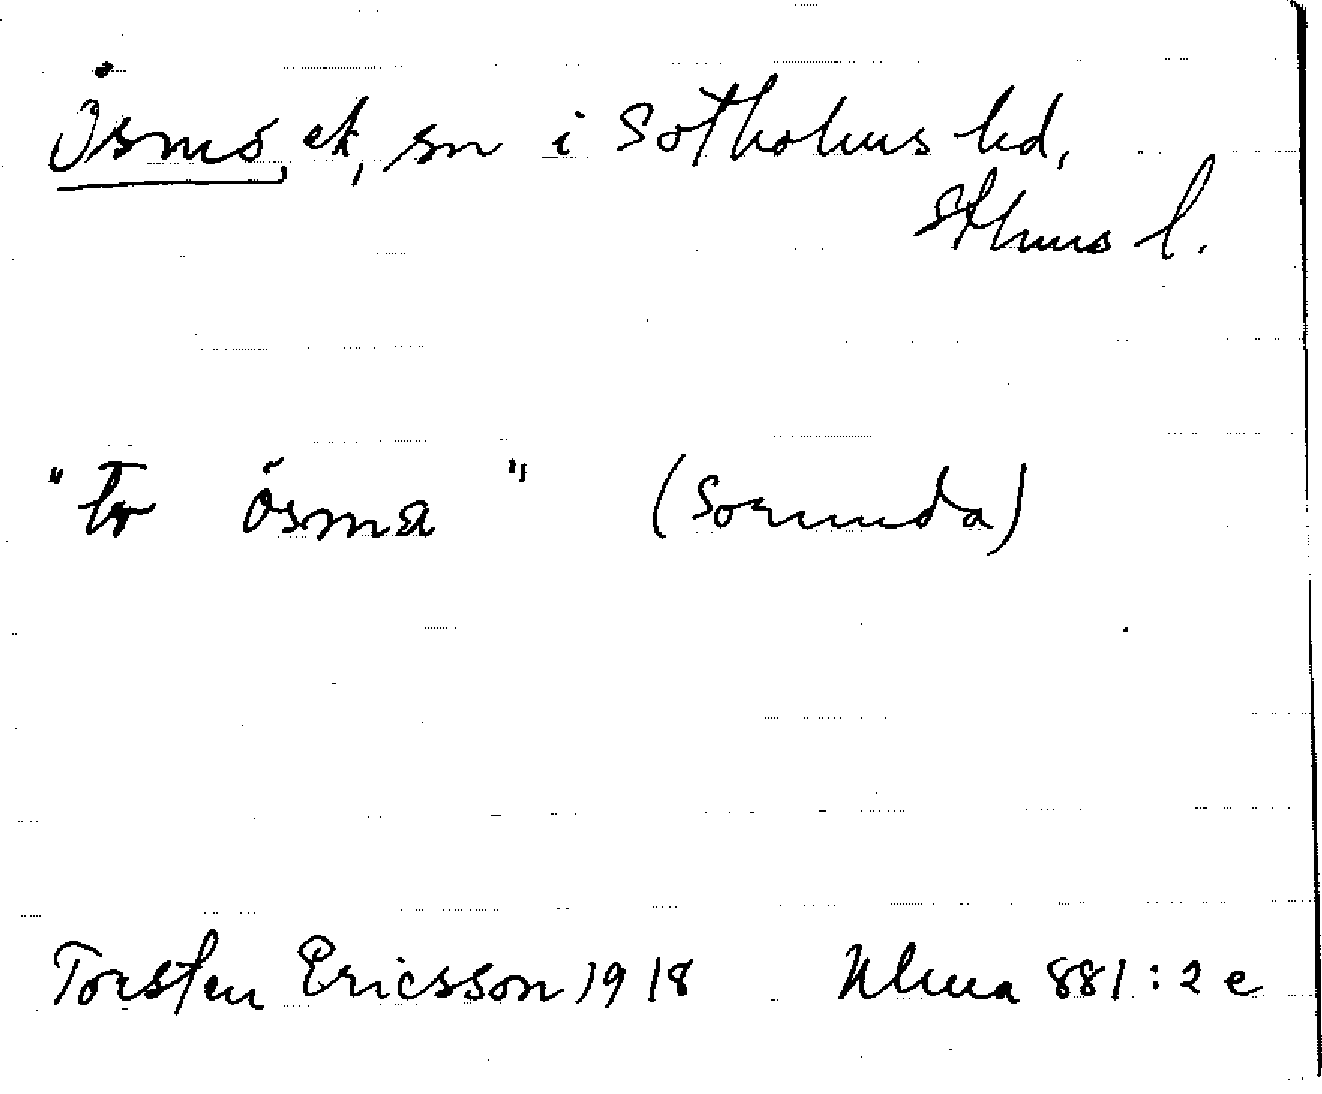 Ösmo, ek, sn i Sotholms hd,
Sthms l.
"Tr ösma" (Sorunda)
Torsten Ericsson 1918 Ulma 881:2 e